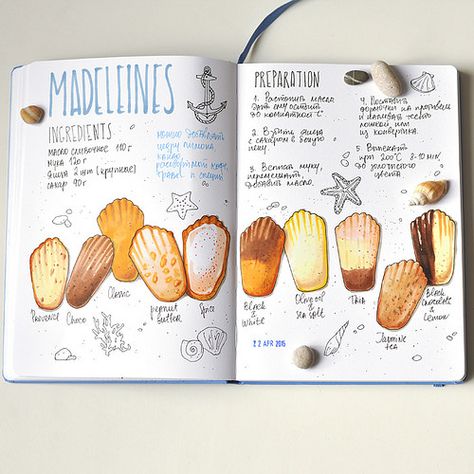 MADELEINES
INGREDIENTS
масло сливочное 110 г
мука 120 г
яйца 2 шт (крупные)
сахар 90 г
можно добавить
цедру лимона
какао
растворимый кофе,
и специи
Provence
Choco
Classic
peanut
butter
Spice
PREPARATION
1. Растопить масло
дать ему остыть
до комнатной t°C
2. Взбить яйца
с сахаром в белую
пену.
3. Всыпать муку,
перемешать,
добавить масло.
4. Поставить
формочки на противень
и наливать тесто
ложкой или
из конверта.
5. Выпекать
при 200°C 8-10 мин
до золотистого
цвета
Black
&
White
Olive oil
&
sea salt
Thia
Jasmine
tea
Black
chocolate
&
Lemon
22 APR 2015